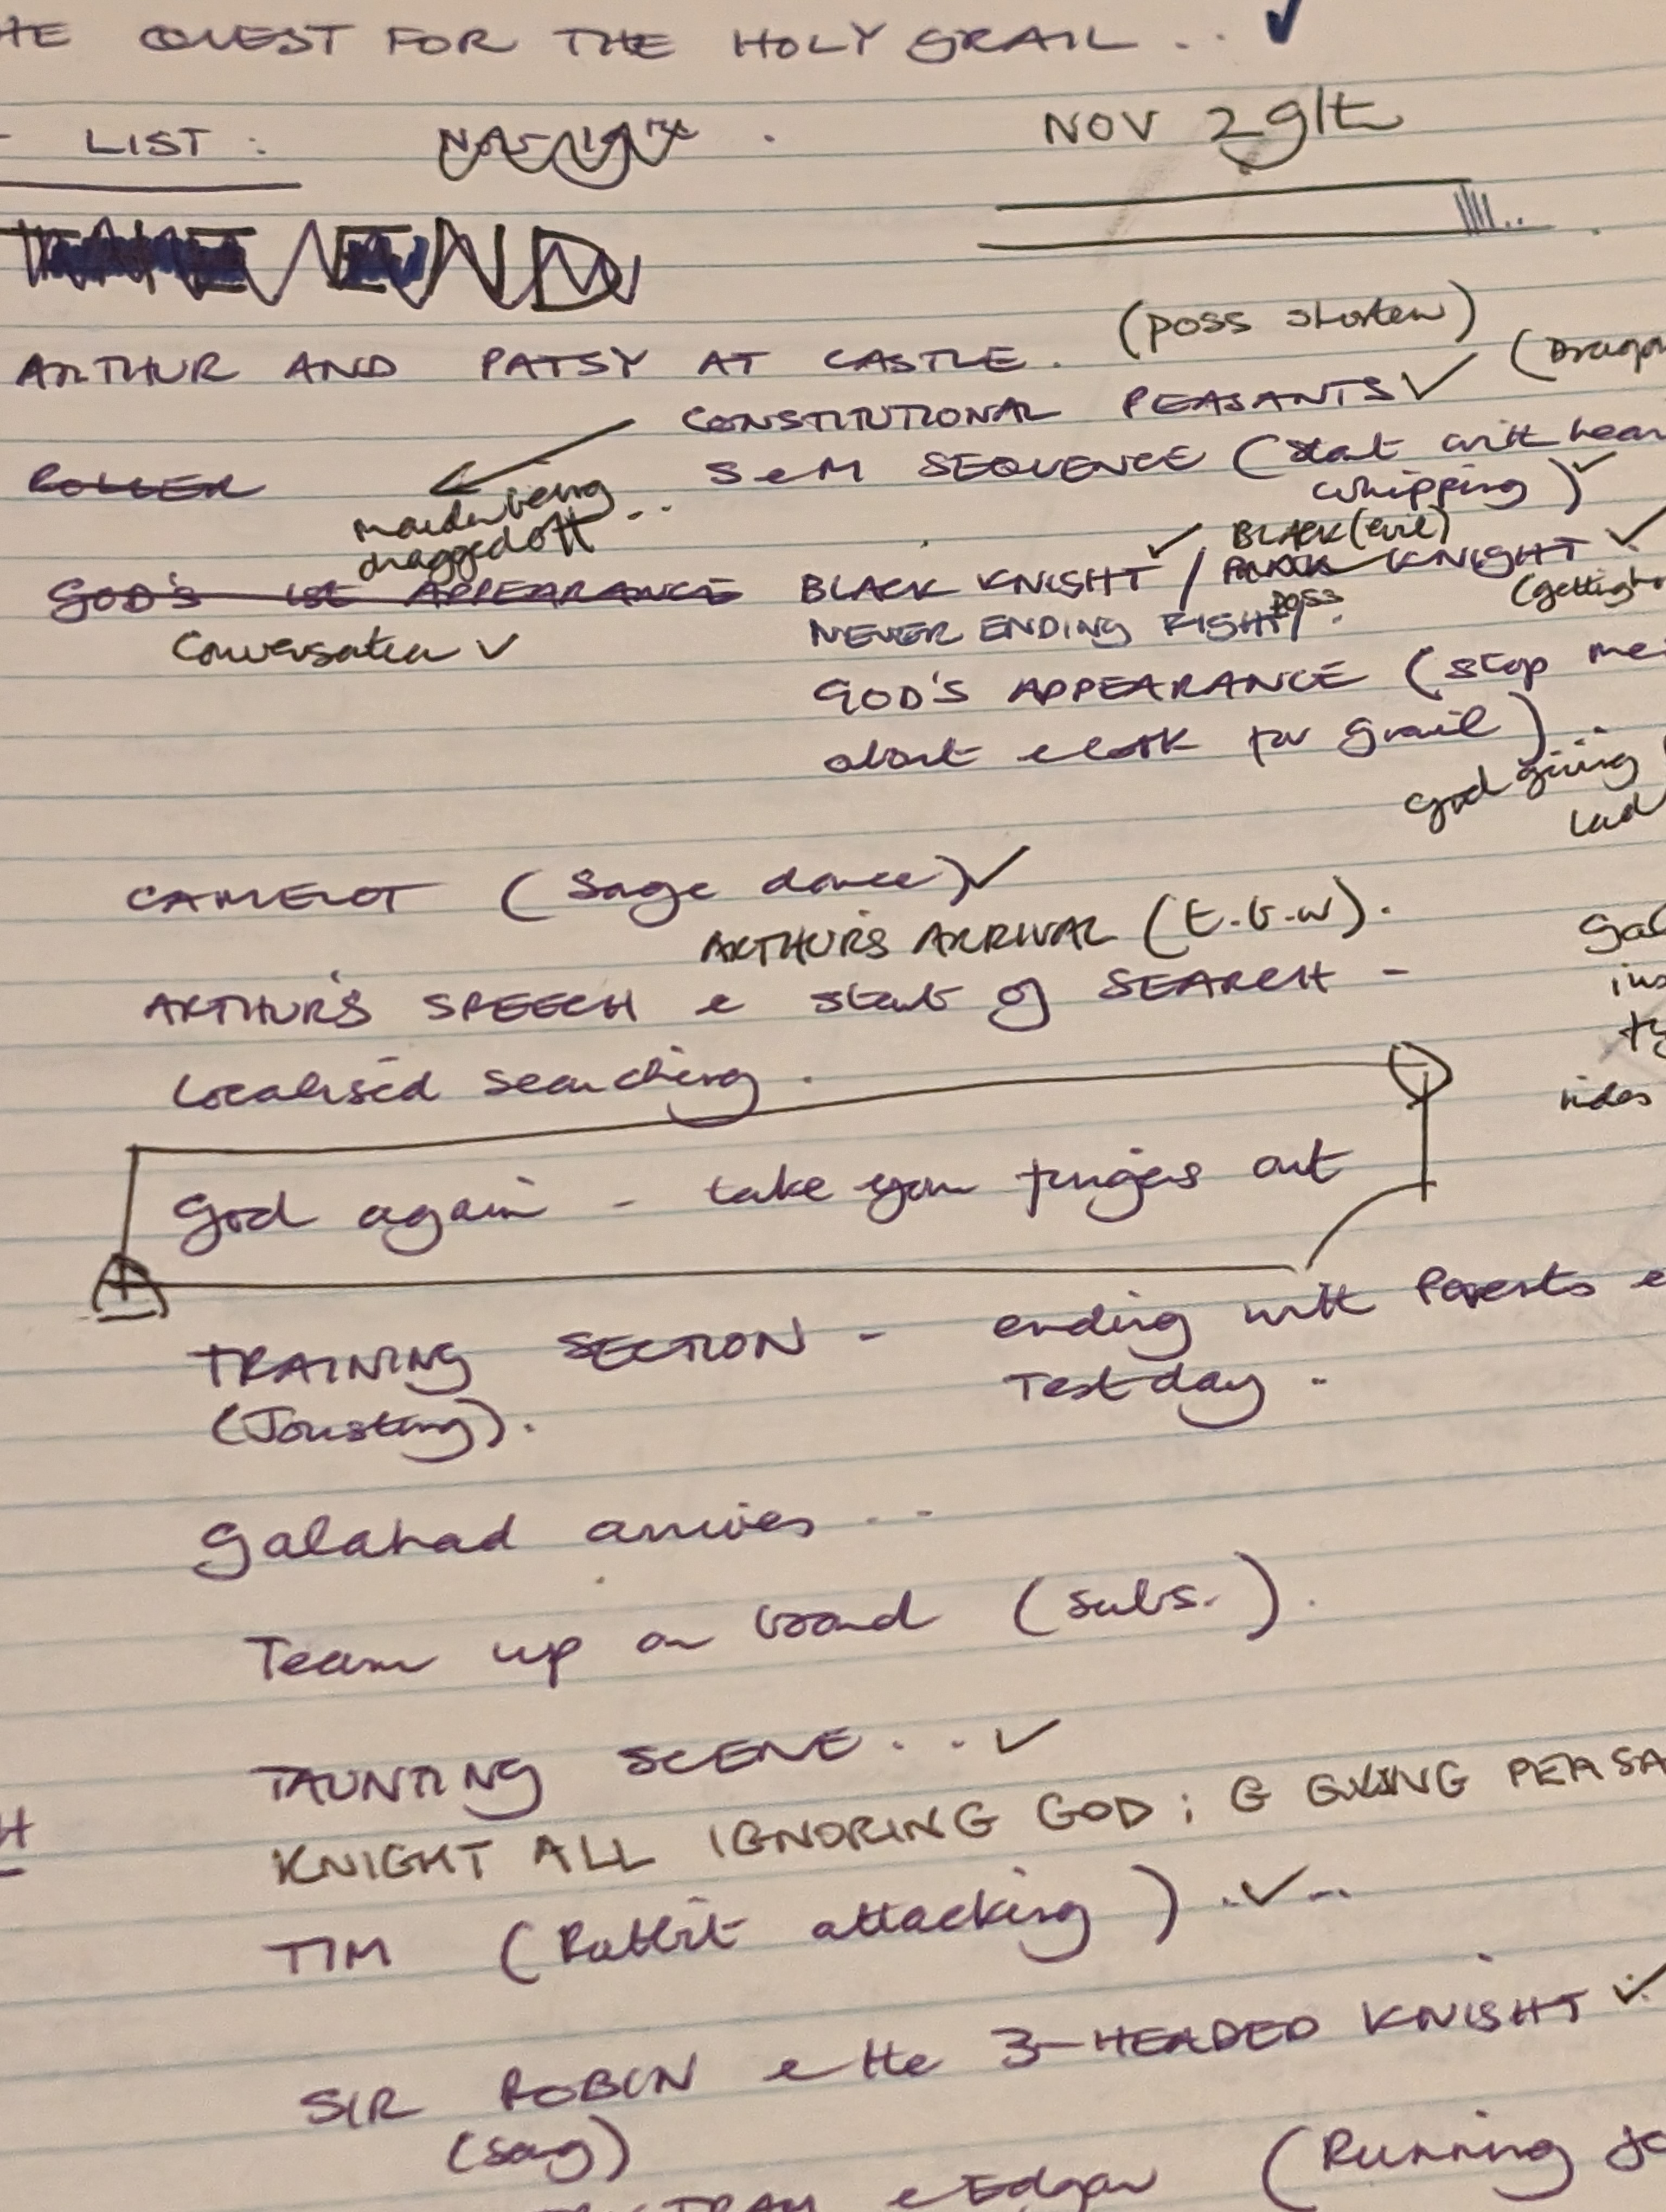 HE QUEST FOR THE HOLY GRAIL ..
LIST : NOV 29th
END
ARTHUR AND PATSY AT CASTLE. (poss shorten)
CONSTITUTIONAL PEASANTS (Drago
ROLLER
S & M SEQUENCE (start with hear
whipping)
maiden being
dragged off ...
GOD'S 1st APPEARANCE
BLACK KNIGHT / BLACK (evil) KNIGHT
Conversation
NEVER ENDING FIGHT poss.
(getting
GOD'S APPEARANCE (stop me
about & look for grail)...
God giving
lad
CAMELOT (Sage dance)
ARTHUR'S ARRIVAL (T.G.W).
ARTHUR'S SPEECH & start of SEARCH -
Localised searching.
Gal
ins
ty
rides
God again - take your fingers out
TRAINING SECTION - ending with Parents &
(Jousting). Test day.
Galahad arrives ..
Team up on board (subs.).
TAUNTING SCENE...
H
KNIGHT ALL IGNORING GOD; G GIVING PEASA
TIM (Rabbit attacking) ...
SIR ROBIN & the 3-HEADED KNIGHT
(song)
TRAM & Edgar (Running jo